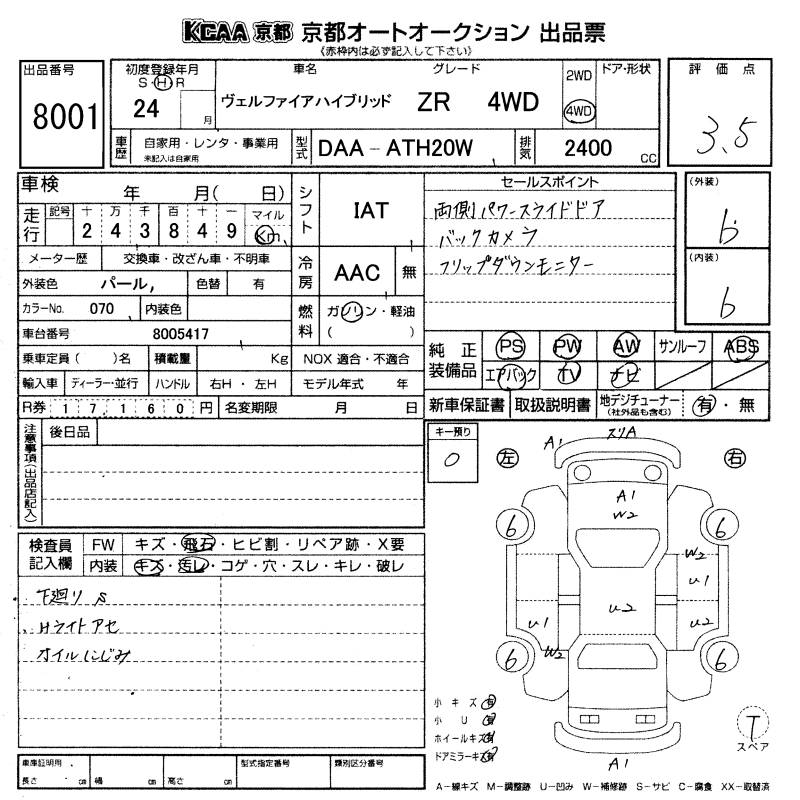 KCAA 京都 京都オートオークション 出品票
《赤枠内は必ず記入して下さい》
出品番号
8001
初度登録年月
S・H・R
24
月
車名
グレード
ヴェルファイアハイブリッド ZR 4WD
2WD
4WD
ドア・形状
評価点
3.5
車歴
自家用・レンタ・事業用
未記入は自家用
型式
DAA-ATH20W
排気
2400 CC
車検 年 月( 日)
走行
記号 十 万 千 百 十 一 マイル
2 4 3 8 4 9 Km
メーター歴 交換車・改ざん車・不明車
外装色 パール, 色替 有
カラーNo. 070 内装色
車台番号 8005417
乗車定員( )名 積載量 Kg
輸入車 ディーラー・並行 ハンドル 右H・左H
R券 17,160円 名変期限 月 日
シフト
IAT
冷房
AAC 無
燃料
ガソリン・軽油
( )
NOX 適合・不適合
モデル年式 年
セールスポイント
両側パワースライドドア
バックカメラ
フリップダウンモニター
(外装)
6
(内装)
6
純正装備品
PS PW AW サンルーフ ABS
エアバック TV ナビ
新車保証書 取扱説明書 地デジチューナー
(社外品も含む)
有・無
注意事項(出品店記入)
後日品
キー預り
0
左
右
A1 スリA
A1
W2
6 6
W2
U1
U2
U1
U2
W2
6 6
A1
検査員記入欄
FW キズ・飛石・ヒビ割・リペア跡・X要
内装 キズ・汚レ・コゲ・穴・スレ・キレ・破レ
下廻り S
Hライトアセ
オイルにじみ
小キズ 有
小U 有
ホイールキズ 有
ドアミラーキズ 有
T
スペア
車庫証明用
長さ cm 幅 cm 高さ cm
型式指定番号
類別区分番号
A-線キズ M-調整跡 U-凹み W-補修跡 S-サビ C-腐食 XX-取替済